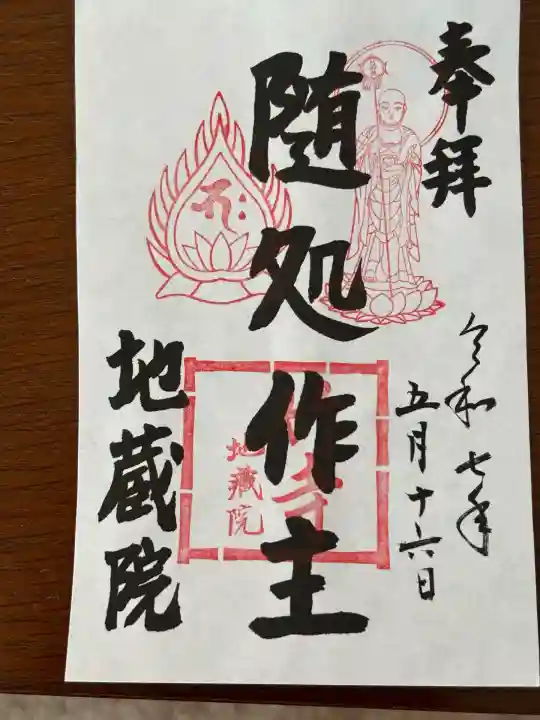 奉拜
令和七年
五月十六日
随処作主
寺
地蔵院
地蔵院